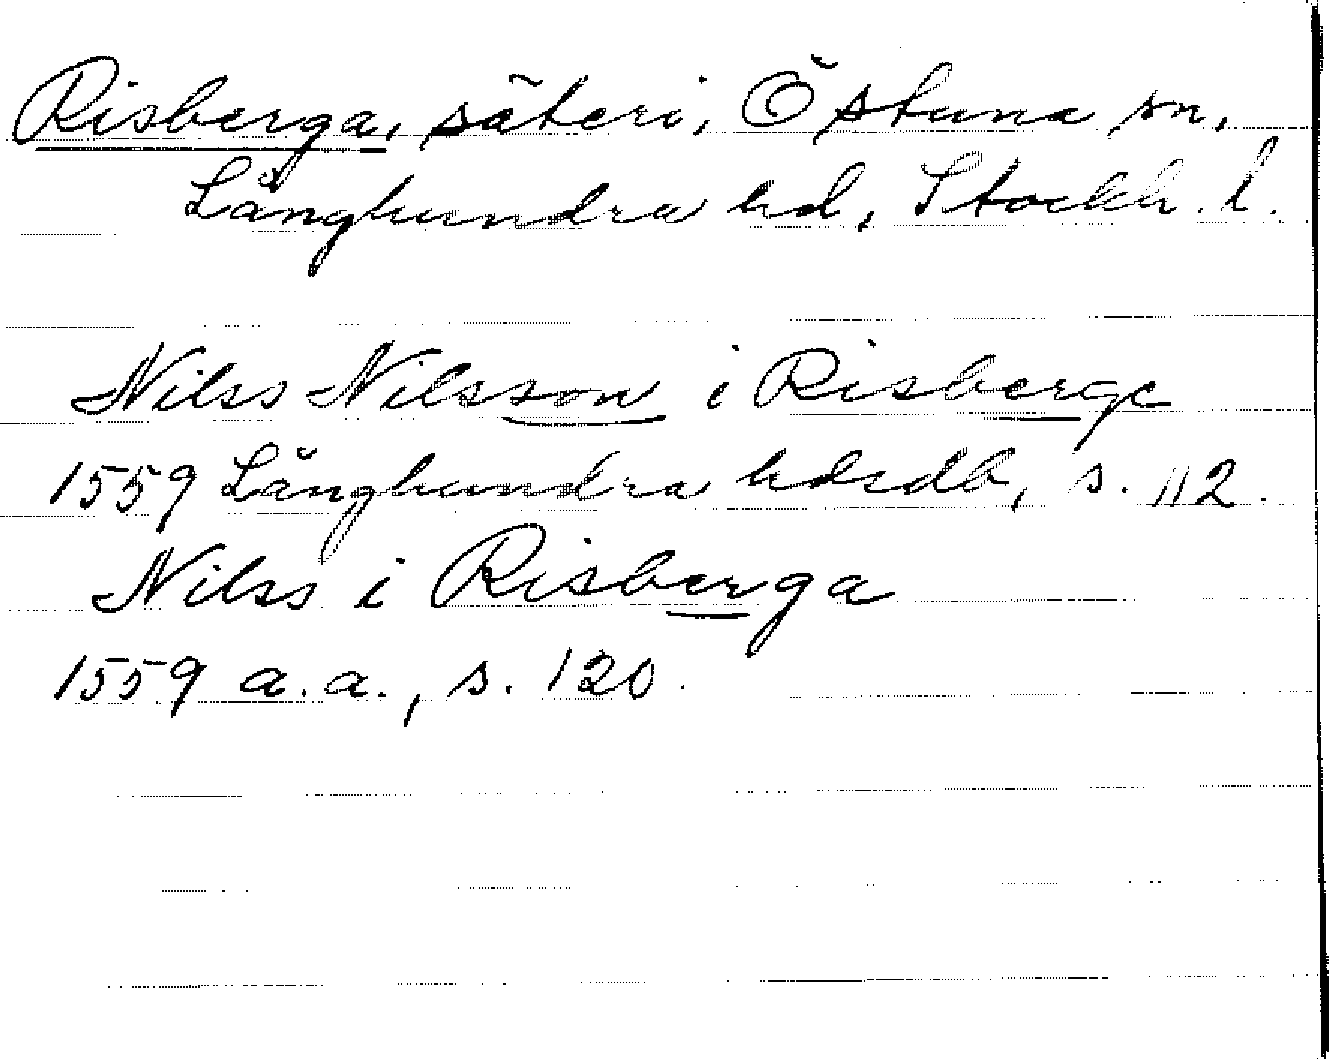 Risberga, säteri, Östuna sn,
Långhundra hd, Stockh. l.
Nilss Nilsson i Risberge
1559 Långhundra hdsdb, s. 112.
Nilss i Risberga
1559 a.a., s. 120.